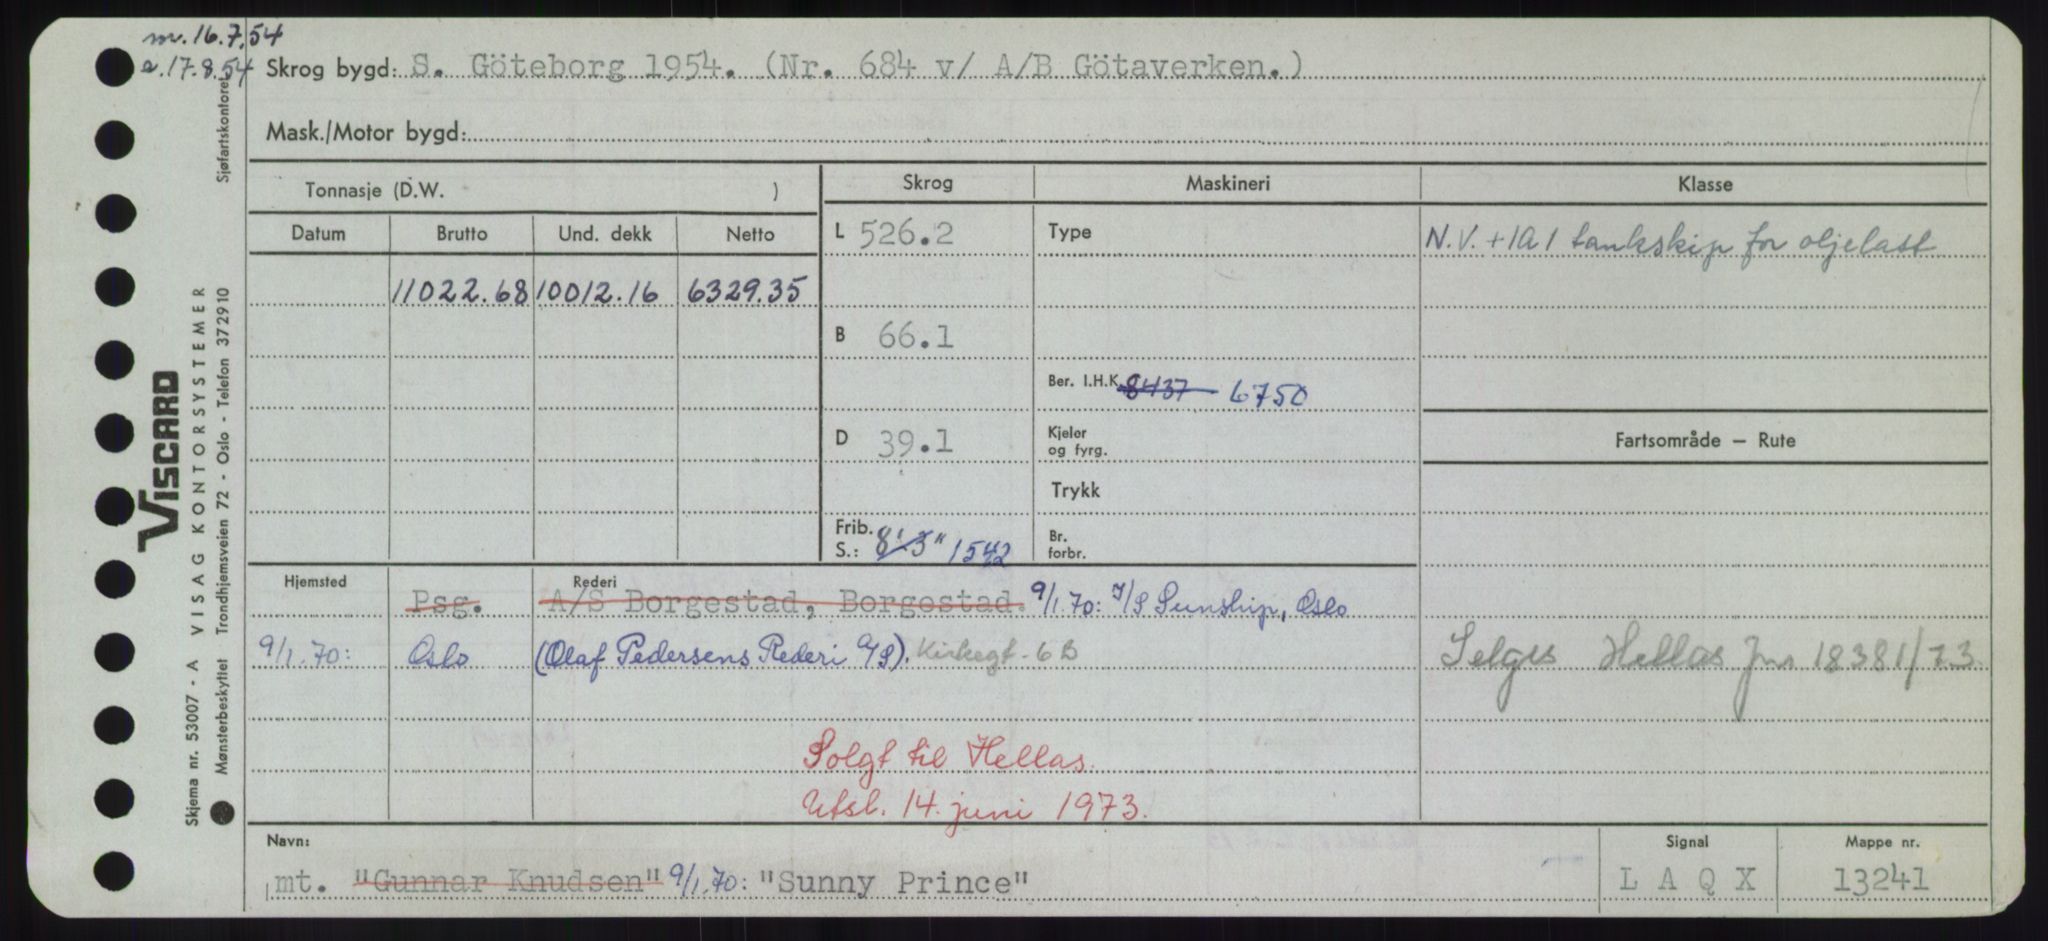 m. 16.7.54
a. 17.8.54
Skrog bygd: S. Göteborg 1954. (Nr. 684 v/ A/B Götaverken.)
Mask./Motor bygd:
Tonnasje (D.W. )
Skrog
Maskineri
Klasse
Datum
Brutto
Und. dekk
Netto
L 526.2
Type
N.V. +1A1 tankskip for oljelast
11022.68 10012.16 6329.35
B 66.1
Ber. I.H.K. 8437 6750
D 39.1
Kjeler
og fyrg.
Fartsområde — Rute
Trykk
Frib.
S.: 8'.5" 1542
Br.
forbr.
Hjemsted
Rederi
Psg. A/S Borgestad, Borgestad. 9/1.70: I/S Sunship, Oslo
9/1.70: Oslo (Olaf Pedersens Rederi A/S). Kirkegt. 6B
Selges Hellas Jnr 18381/73
Solgt til Hellas.
Utsl. 14. juni 1973.
Navn:
Signal
Mappe nr.
mt. "Gunnar Knudsen" 9/1.70: "Sunny Prince"
L A Q X
13241
VISCARD
Skjema nr. 53007 - A VISAG KONTORSYSTEMER
Mønsterbeskyttet Trondhjemsveien 72 - Oslo - Telefon 37 29 10
Sjøfartskontoret